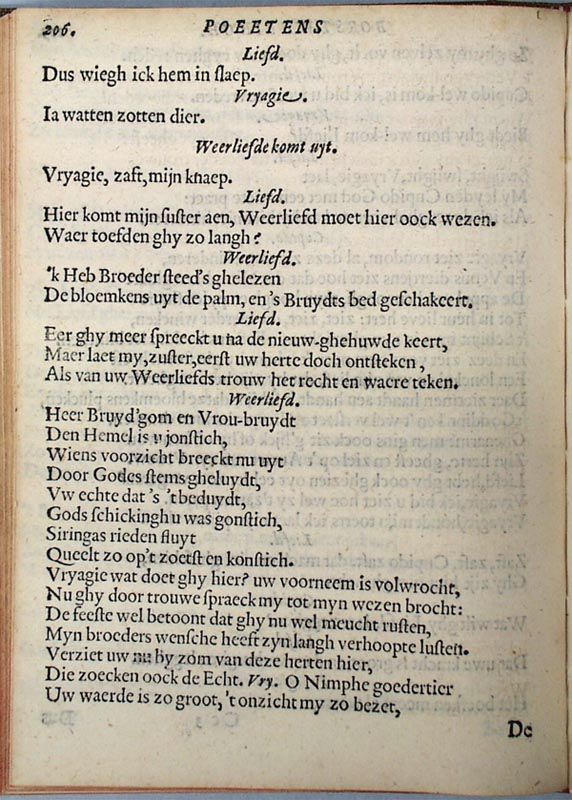 206. POEETENS
Liefd.
Dus wiegh ick hem in ſlaep.
Vryagie.
Ia watten zotten dier.
Weerliefde komt uyt.
Vryagie, zaft, mijn knaep.
Liefd.
Hier komt mijn ſuſter aen, Weerliefd moet hier oock wezen.
Waer toefden ghy zo langh?
Weerliefd.
'k Heb Broeder ſteed's ghelezen
De bloemkens uyt de palm, en 's Bruydts bed geſchakeert.
Liefd.
Eer ghy meer ſpreeckt u na de nieuw-ghehuwde keert,
Maer laet my, zuſter, eerſt uw herte doch ontſteken,
Als van uw Weerliefds trouw het recht en waere teken.
Weerliefd.
Heer Bruyd'gom en Vrou-bruydt
Den Hemel is u jonſtich,
Wiens voorzicht breeckt nu uyt
Door Godes ſtems gheluydt,
Vw echte dat 's 't beduydt,
Gods ſchickingh u was gonſtich,
Siringas rieden fluyt
Queelt zo op't zoetſt en konſtich.
Vryagie wat doet ghy hier? uw voorneem is volwrocht,
Nu ghy door trouwe ſpraeck my tot myn wezen brocht:
De feeſte wel betoont dat ghy nu wel meucht ruſten,
Myn broeders wenſche heeft zyn langh verhoopte luſten.
Verziet uw nu by zom van deze herten hier,
Die zoecken oock de Echt. Vry. O Nimphe goedertier
Uw waerde is zo groot, 't onzicht my zo bezet,
De